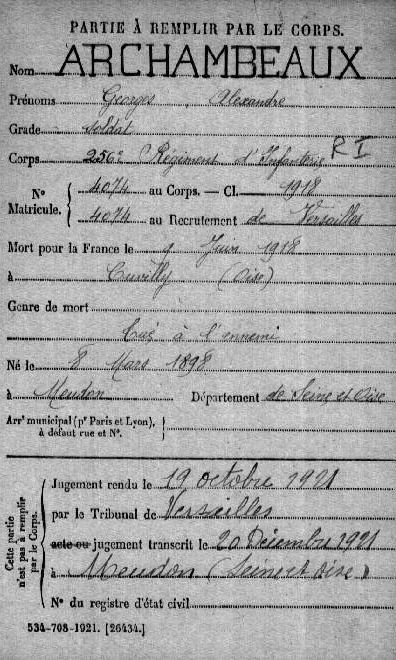 PARTIE À REMPLIR PAR LE CORPS.
Nom ARCHAMBEAUX
Prénoms Georges, Alexandre
Grade soldat
Corps 256e Régiment d'Infanterie R I
N° Matricule. { 4074 au Corps. — Cl. 1918
4074 au Recrutement de Versailles
Mort pour la France le 9 Juin 1918
à Cuvilly (Oise)
Genre de mort
tué à l'ennemi
Né le 8 Mars 1898
à Meudon Département de Seine et Oise
Arrt municipal (pr Paris et Lyon), à défaut rue et N°. }
Cette partie n'est pas à remplir par le Corps. {
Jugement rendu le 19 octobre 1921
par le Tribunal de Versailles
acte ou jugement transcrit le 20 Décembre 1921
à Meudon (Seine et Oise)
N° du registre d'état civil
534-708-1921. [26434.]